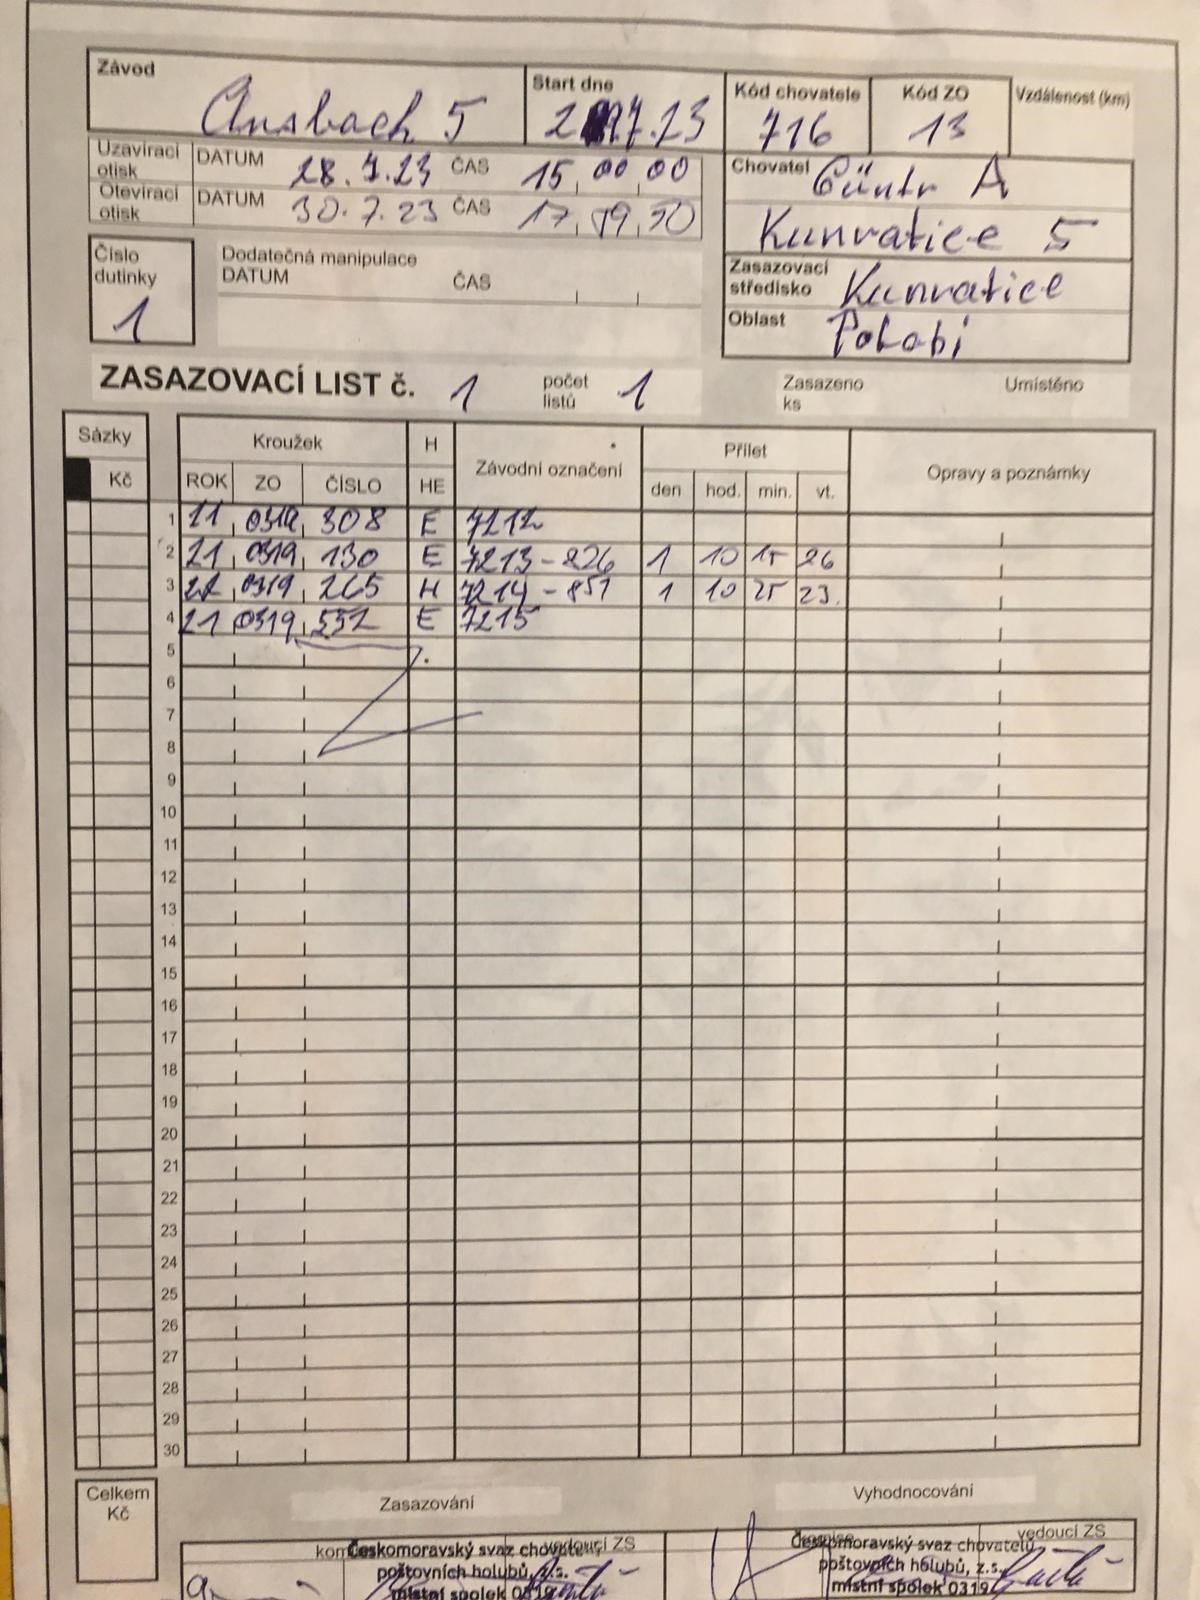 Závod Start dne Kód chovatele Kód ZO Vzdálenost (km)
Ansbach 5 716 13
Uzavírací otisk DATUM 28.7.23 ČAS 15 00 00
Otevírací otisk DATUM 30.7.23 ČAS 17
Chovatel Güntr A
Kunratice 5
Číslo dutinky 1
Dodatečná manipulace
DATUM ČAS
Zasazovací středisko Kunratice
Oblast Polabí
ZASAZOVACÍ LIST č. 1 počet listů 1 Zasazeno ks Umístěno
Sázky Kroužek H Závodní označení Přílet Opravy a poznámky
Kč ROK ZO ČÍSLO HE den hod. min. vt.
1 0319 308 E 7212
2 21 0319 130 E 7213 - 826 1 10 15 26
3 0319 265 H 7214 - 851 1 10 25 23
4 21 0319 552 E 7215
5
6
7
8
9
10
11
12
13
14
15
16
17
18
19
20
21
22
23
24
25
26
27
28
29
30
Celkem Kč
Zasazování Vyhodnocování
vedoucí ZS komise vedoucí ZS
Českomoravský svaz chovatelů
poštovních holubů, z.s.
místní spolek 0319
Českomoravský svaz chovatelů
poštovních holubů, z.s.
místní spolek 0319